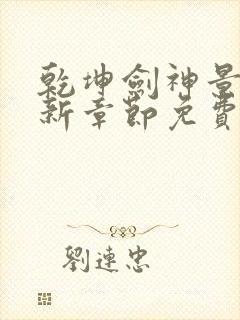 乾坤劍神景
新章節免費
劉連忠